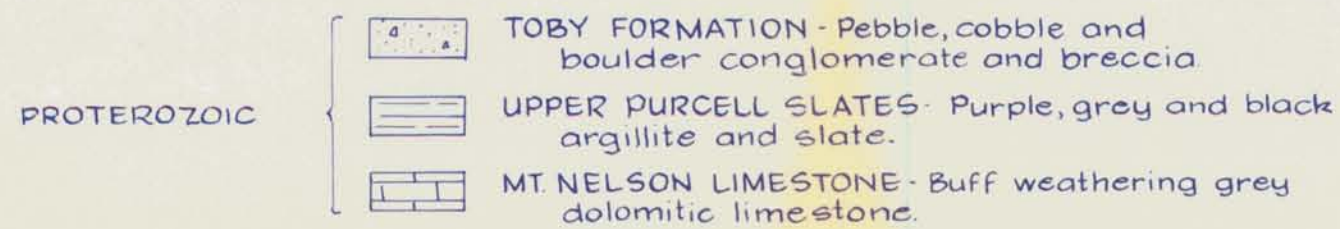 TOBY FORMATION - Pebble, cobble and
boulder conglomerate and breccia.
PROTEROZOIC
UPPER PURCELL SLATES - Purple, grey and black
argillite and slate.
MT. NELSON LIMESTONE - Buff weathering grey
dolomitic limestone.